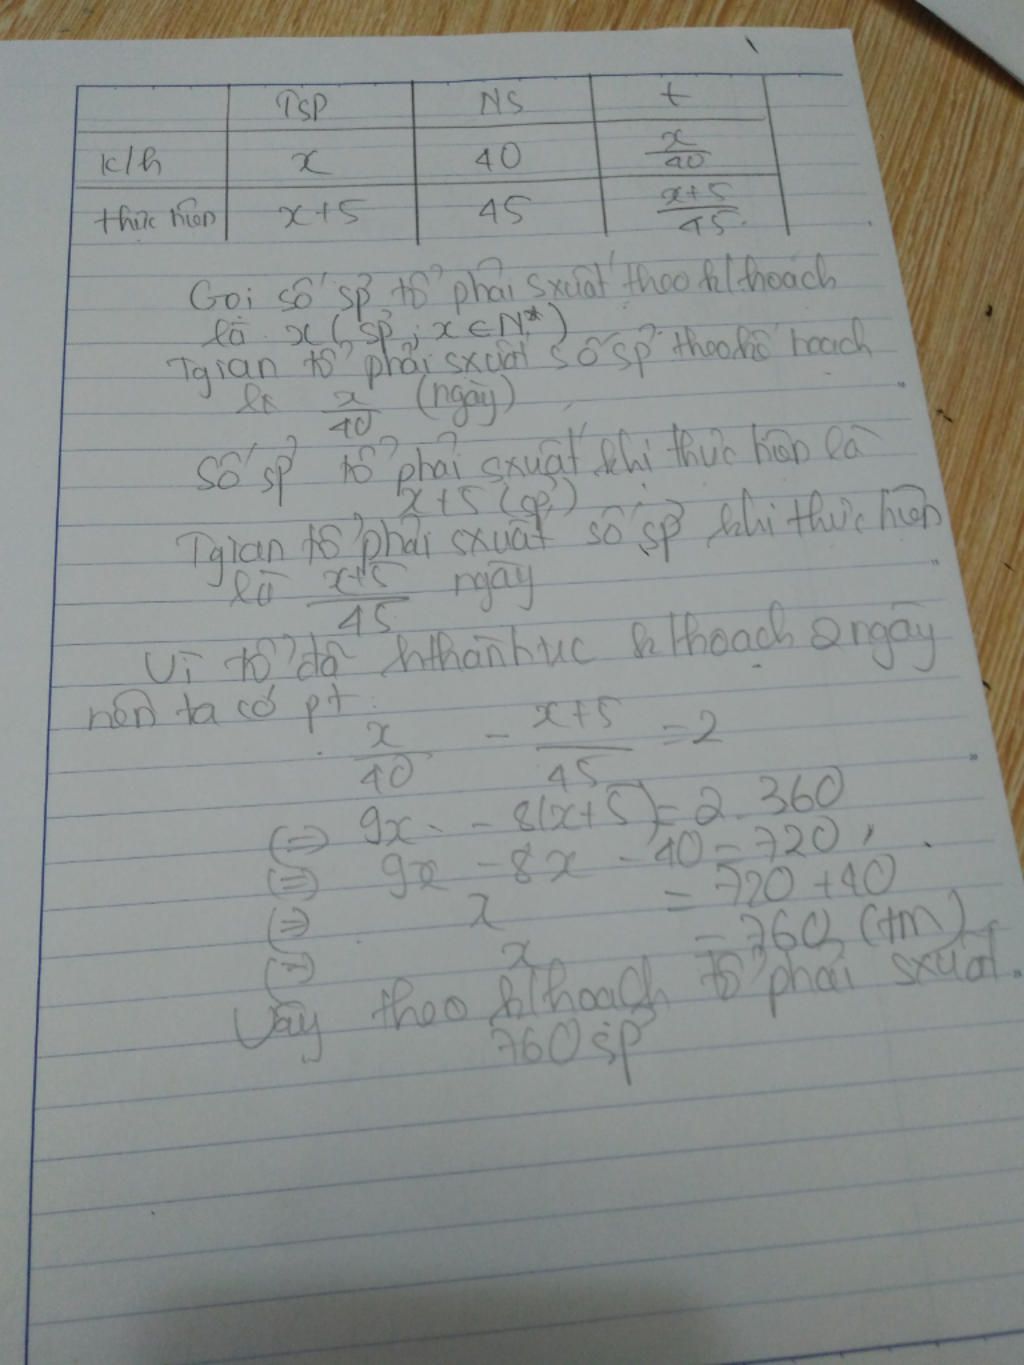 TSP NS t
k/h x 40 x/40
thực hiện x+5 45 x+5/45
Gọi số sp tổ phải sxuất theo k/hoạch
là x (sp, x ∈ N*)
Tgian tổ phải sxuất số sp theo kế hoạch
là x/40 (ngày)
Số sp tổ phải sxuất khi thực hiện là
x+5 (sp)
Tgian tổ phải sxuất số sp khi thực hiện
là x+5/45 ngày
Vì tổ đã hthành k/hoạch 2 ngày
nên ta có pt:
x/40 - x+5/45 = 2
(=) 9x - 8(x+5) = 2. 360
(=) 9x - 8x - 40 = 720
(=) x = 720 + 40
(=) x = 760 (tm)
Vậy theo k/hoạch tổ phải sxuất
760 sp